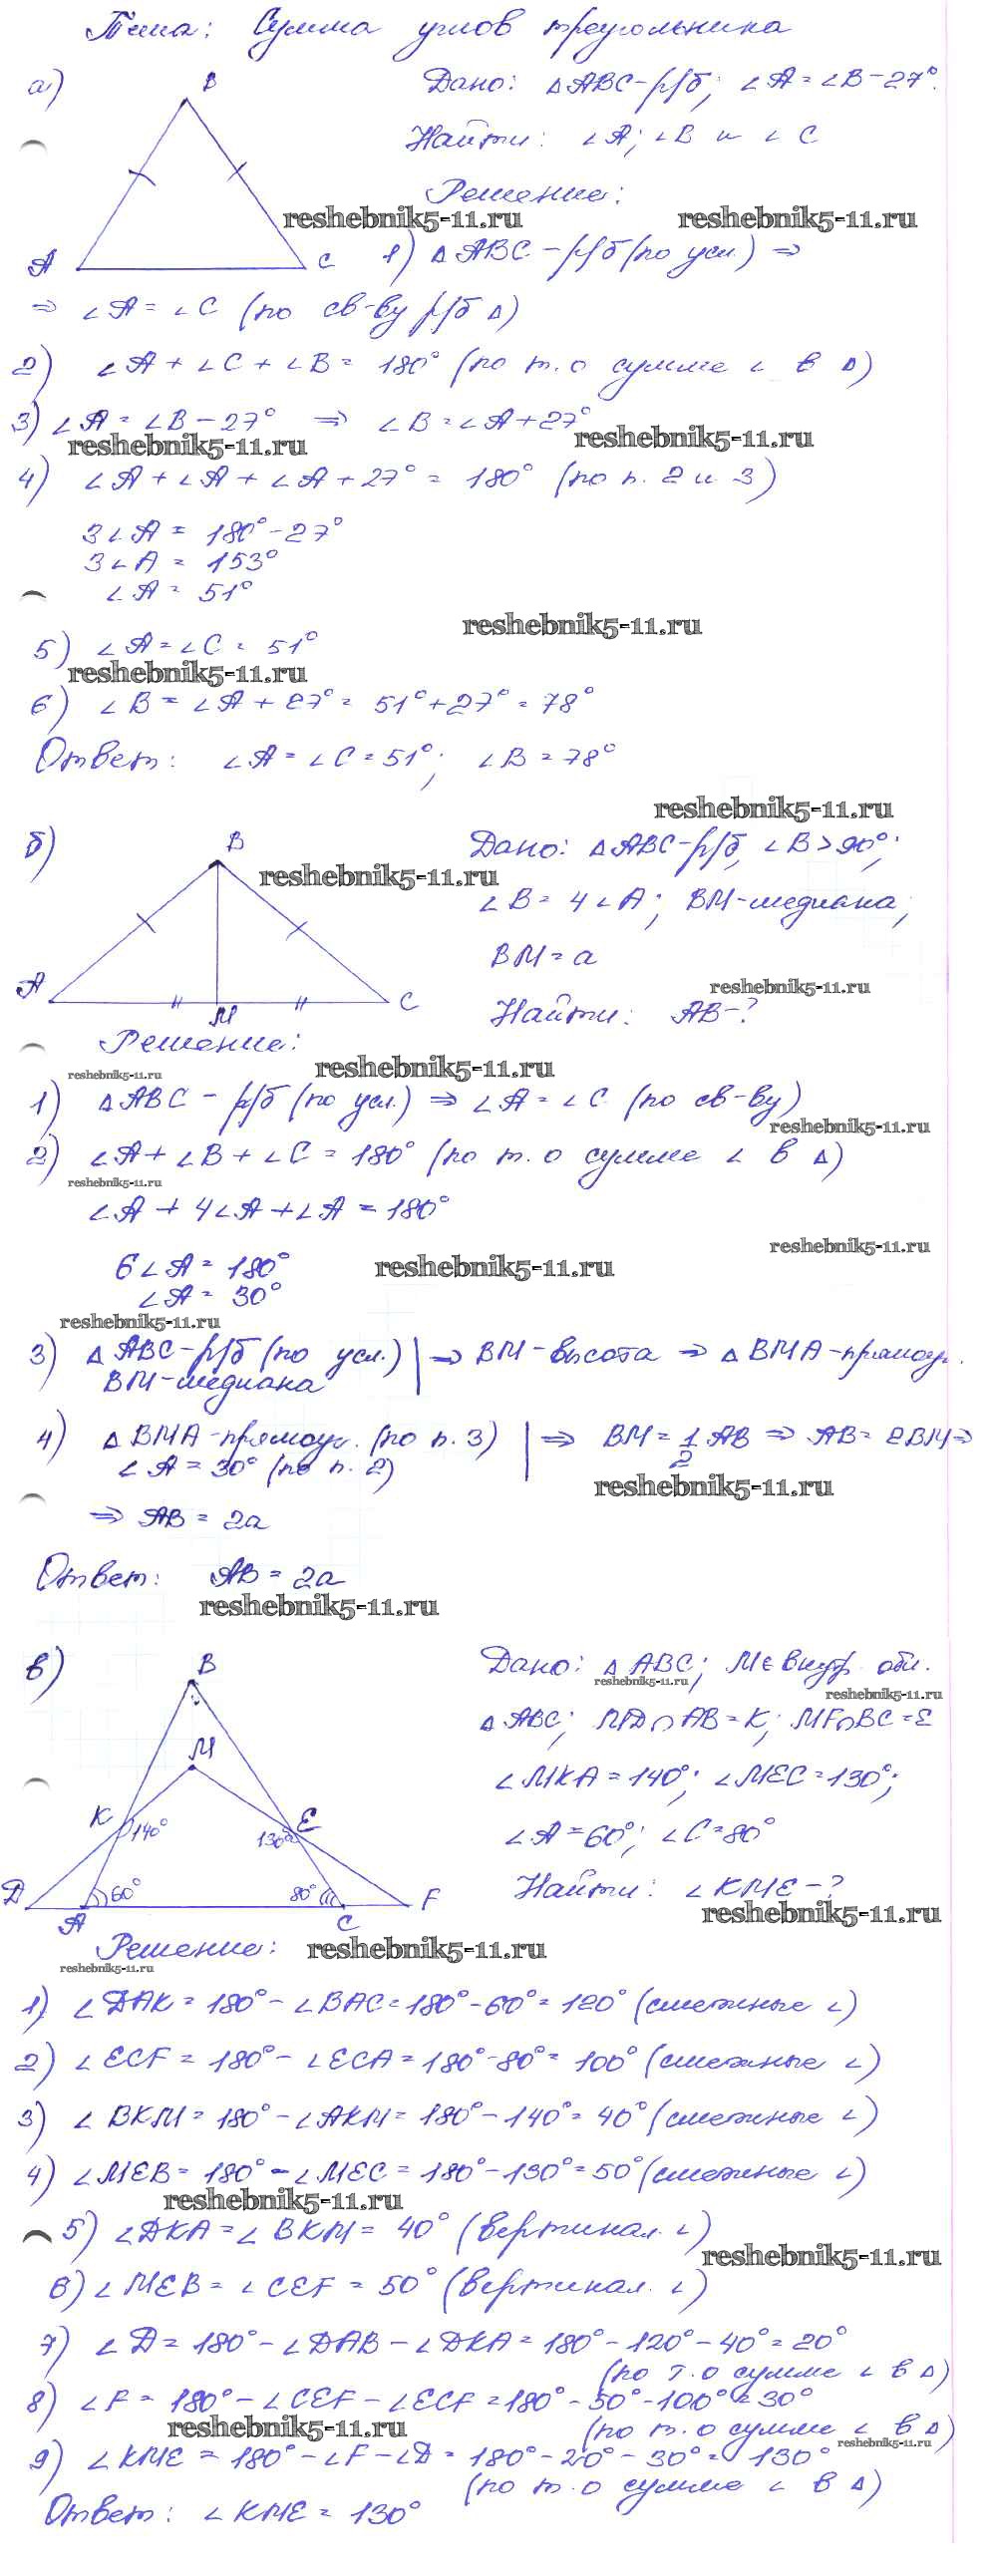 Тема: Сумма углов треугольника
а)
B
A
C
Дано: △ABC-р/б; ∠A=∠B-27°.
Найти: ∠A; ∠B и ∠C
Решение:
reshebnik5-11.ru reshebnik5-11.ru
1) △ABC-р/б (по усл.) ⇒
⇒ ∠A=∠C (по св-ву р/б △)
2) ∠A+∠C+∠B=180° (по т. о сумме ∠ в △)
3) ∠A=∠B-27° ⇒ ∠B=∠A+27°
reshebnik5-11.ru reshebnik5-11.ru
4) ∠A+∠A+∠A+27°=180° (по п. 2 и 3)
3∠A=180°-27°
3∠A=153°
∠A=51°
reshebnik5-11.ru
5) ∠A=∠C=51°
reshebnik5-11.ru
6) ∠B=∠A+27°=51°+27°=78°
Ответ: ∠A=∠C=51°; ∠B=78°
reshebnik5-11.ru
б)
B
A
M
C
reshebnik5-11.ru
Дано: △ABC-р/б, ∠B>90°;
∠B=4∠A; BM-медиана;
BM=a
reshebnik5-11.ru
Найти: AB-?
Решение:
reshebnik5-11.ru reshebnik5-11.ru
1) △ABC-р/б (по усл.) ⇒ ∠A=∠C (по св-ву)
reshebnik5-11.ru
2) ∠A+∠B+∠C=180° (по т. о сумме ∠ в △)
reshebnik5-11.ru
∠A+4∠A+∠A=180°
reshebnik5-11.ru
6∠A=180°
reshebnik5-11.ru
∠A=30°
reshebnik5-11.ru
3) △ABC-р/б (по усл.) | ⇒ BM-высота ⇒ △BMA-прямоуг.
BM-медиана
4) △BMA-прямоуг. (по п. 3) | ⇒ BM=1/2 AB ⇒ AB=2BM ⇒
∠A=30° (по п. 2)
reshebnik5-11.ru
⇒ AB=2a
Ответ: AB=2a
reshebnik5-11.ru
в)
B
M
K
140°
E
130°
D
60°
80°
F
A
C
Дано: △ABC; M∈внутр. обл.
reshebnik5-11.ru reshebnik5-11.ru
△ABC; MD∩AB=K; MF∩BC=E
∠MKA=140°; ∠MEC=130°;
∠A=60°; ∠C=80°
Найти: ∠KME-?
reshebnik5-11.ru
Решение:
reshebnik5-11.ru
reshebnik5-11.ru
1) ∠DAK=180°-∠BAC=180°-60°=120° (смежные ∠)
2) ∠ECF=180°-∠ECA=180°-80°=100° (смежные ∠)
3) ∠BKM=180°-∠AKM=180°-140°=40° (смежные ∠)
4) ∠MEB=180°-∠MEC=180°-130°=50° (смежные ∠)
reshebnik5-11.ru
5) ∠DKA=∠BKM=40° (вертикал. ∠)
reshebnik5-11.ru
6) ∠MEB=∠CEF=50° (вертикал. ∠)
7) ∠D=180°-∠DAB-∠DKA=180°-120°-40°=20°
(по т. о сумме ∠ в △)
8) ∠F=180°-∠CEF-∠ECF=180°-50°-100°=30°
reshebnik5-11.ru
(по т. о сумме ∠ в △)
reshebnik5-11.ru
9) ∠KME=180°-∠F-∠D=180°-20°-30°=130°
(по т. о сумме ∠ в △)
Ответ: ∠KME=130°